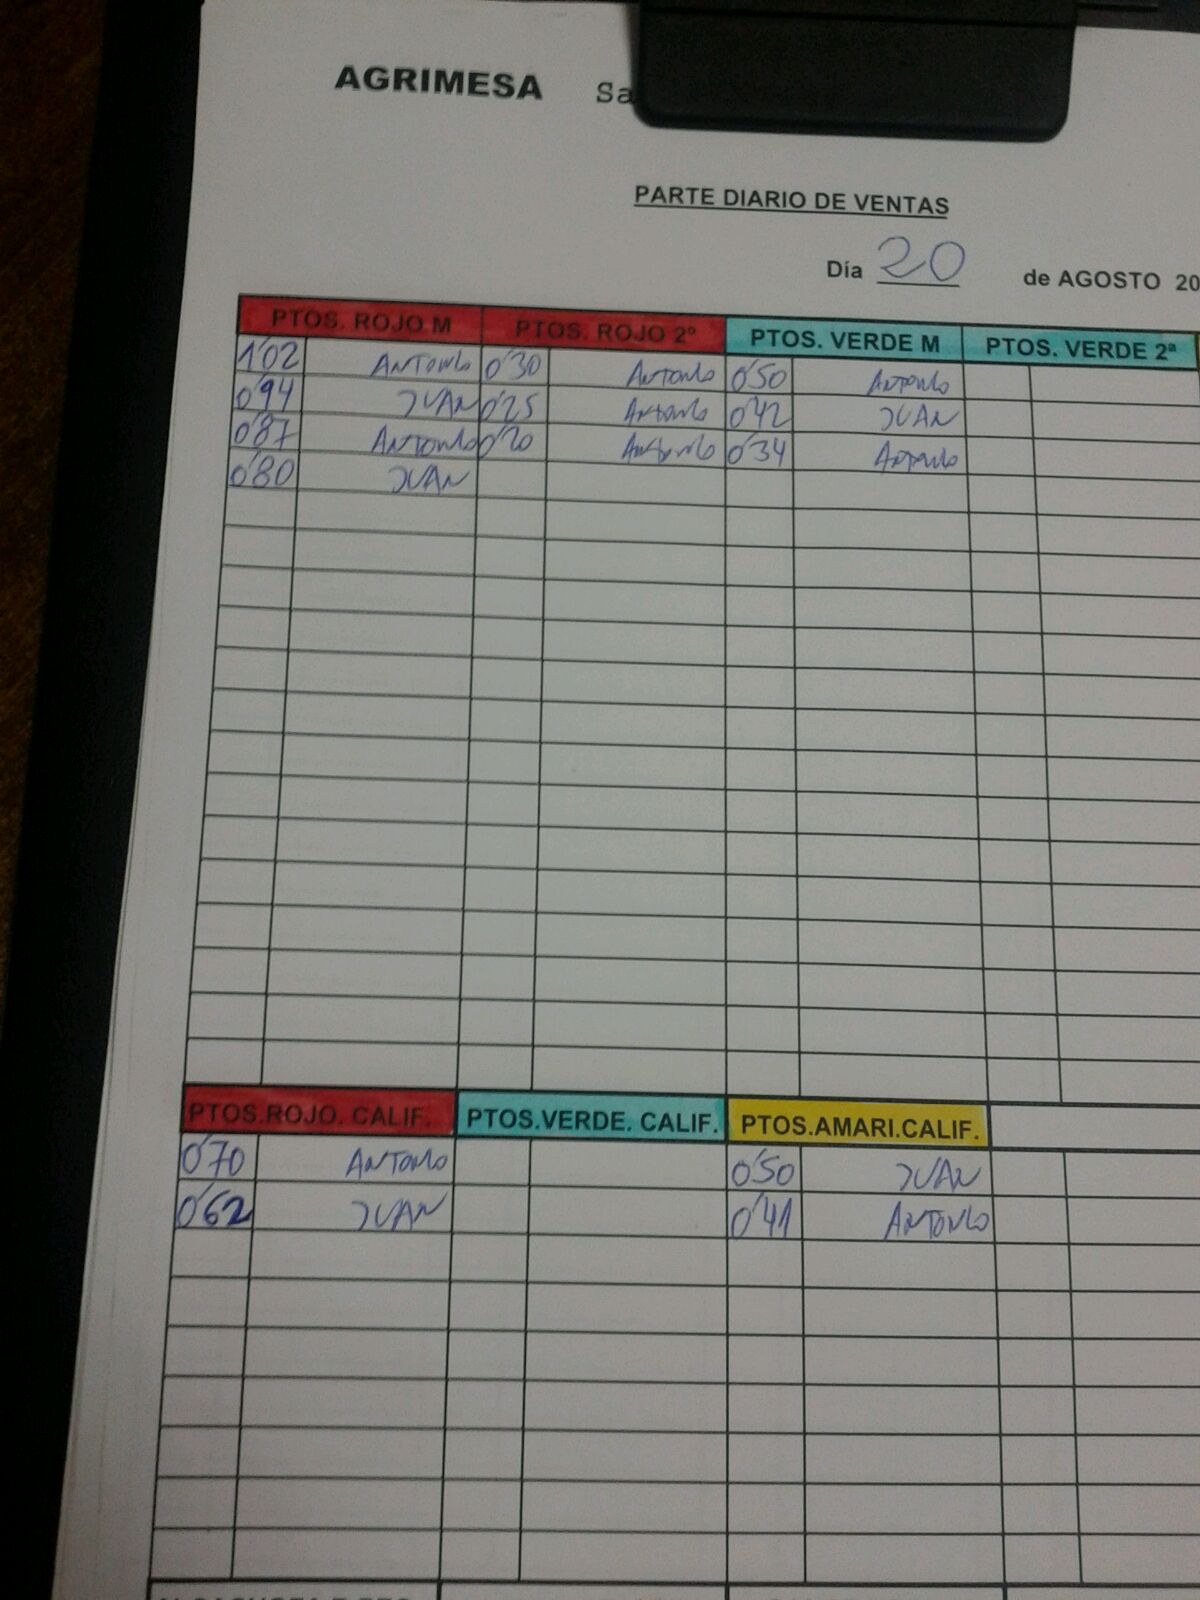 AGRIMESA Sa
PARTE DIARIO DE VENTAS
Día 20 de AGOSTO 20
PTOS. ROJO M PTOS. ROJO 2º PTOS. VERDE M PTOS. VERDE 2ª
1'02 ANTONIO 0'30 ANTONIO 0'50 ANTONIO
0'94 JUAN 0'25 ANTONIO 0'42 JUAN
0'87 ANTONIO 0'20 ANTONIO 0'34 ANTONIO
0'80 JUAN
PTOS.ROJO. CALIF. PTOS.VERDE. CALIF. PTOS.AMARI.CALIF.
0'70 ANTONIO 0'50 JUAN
0'62 JUAN 0'41 ANTONIO